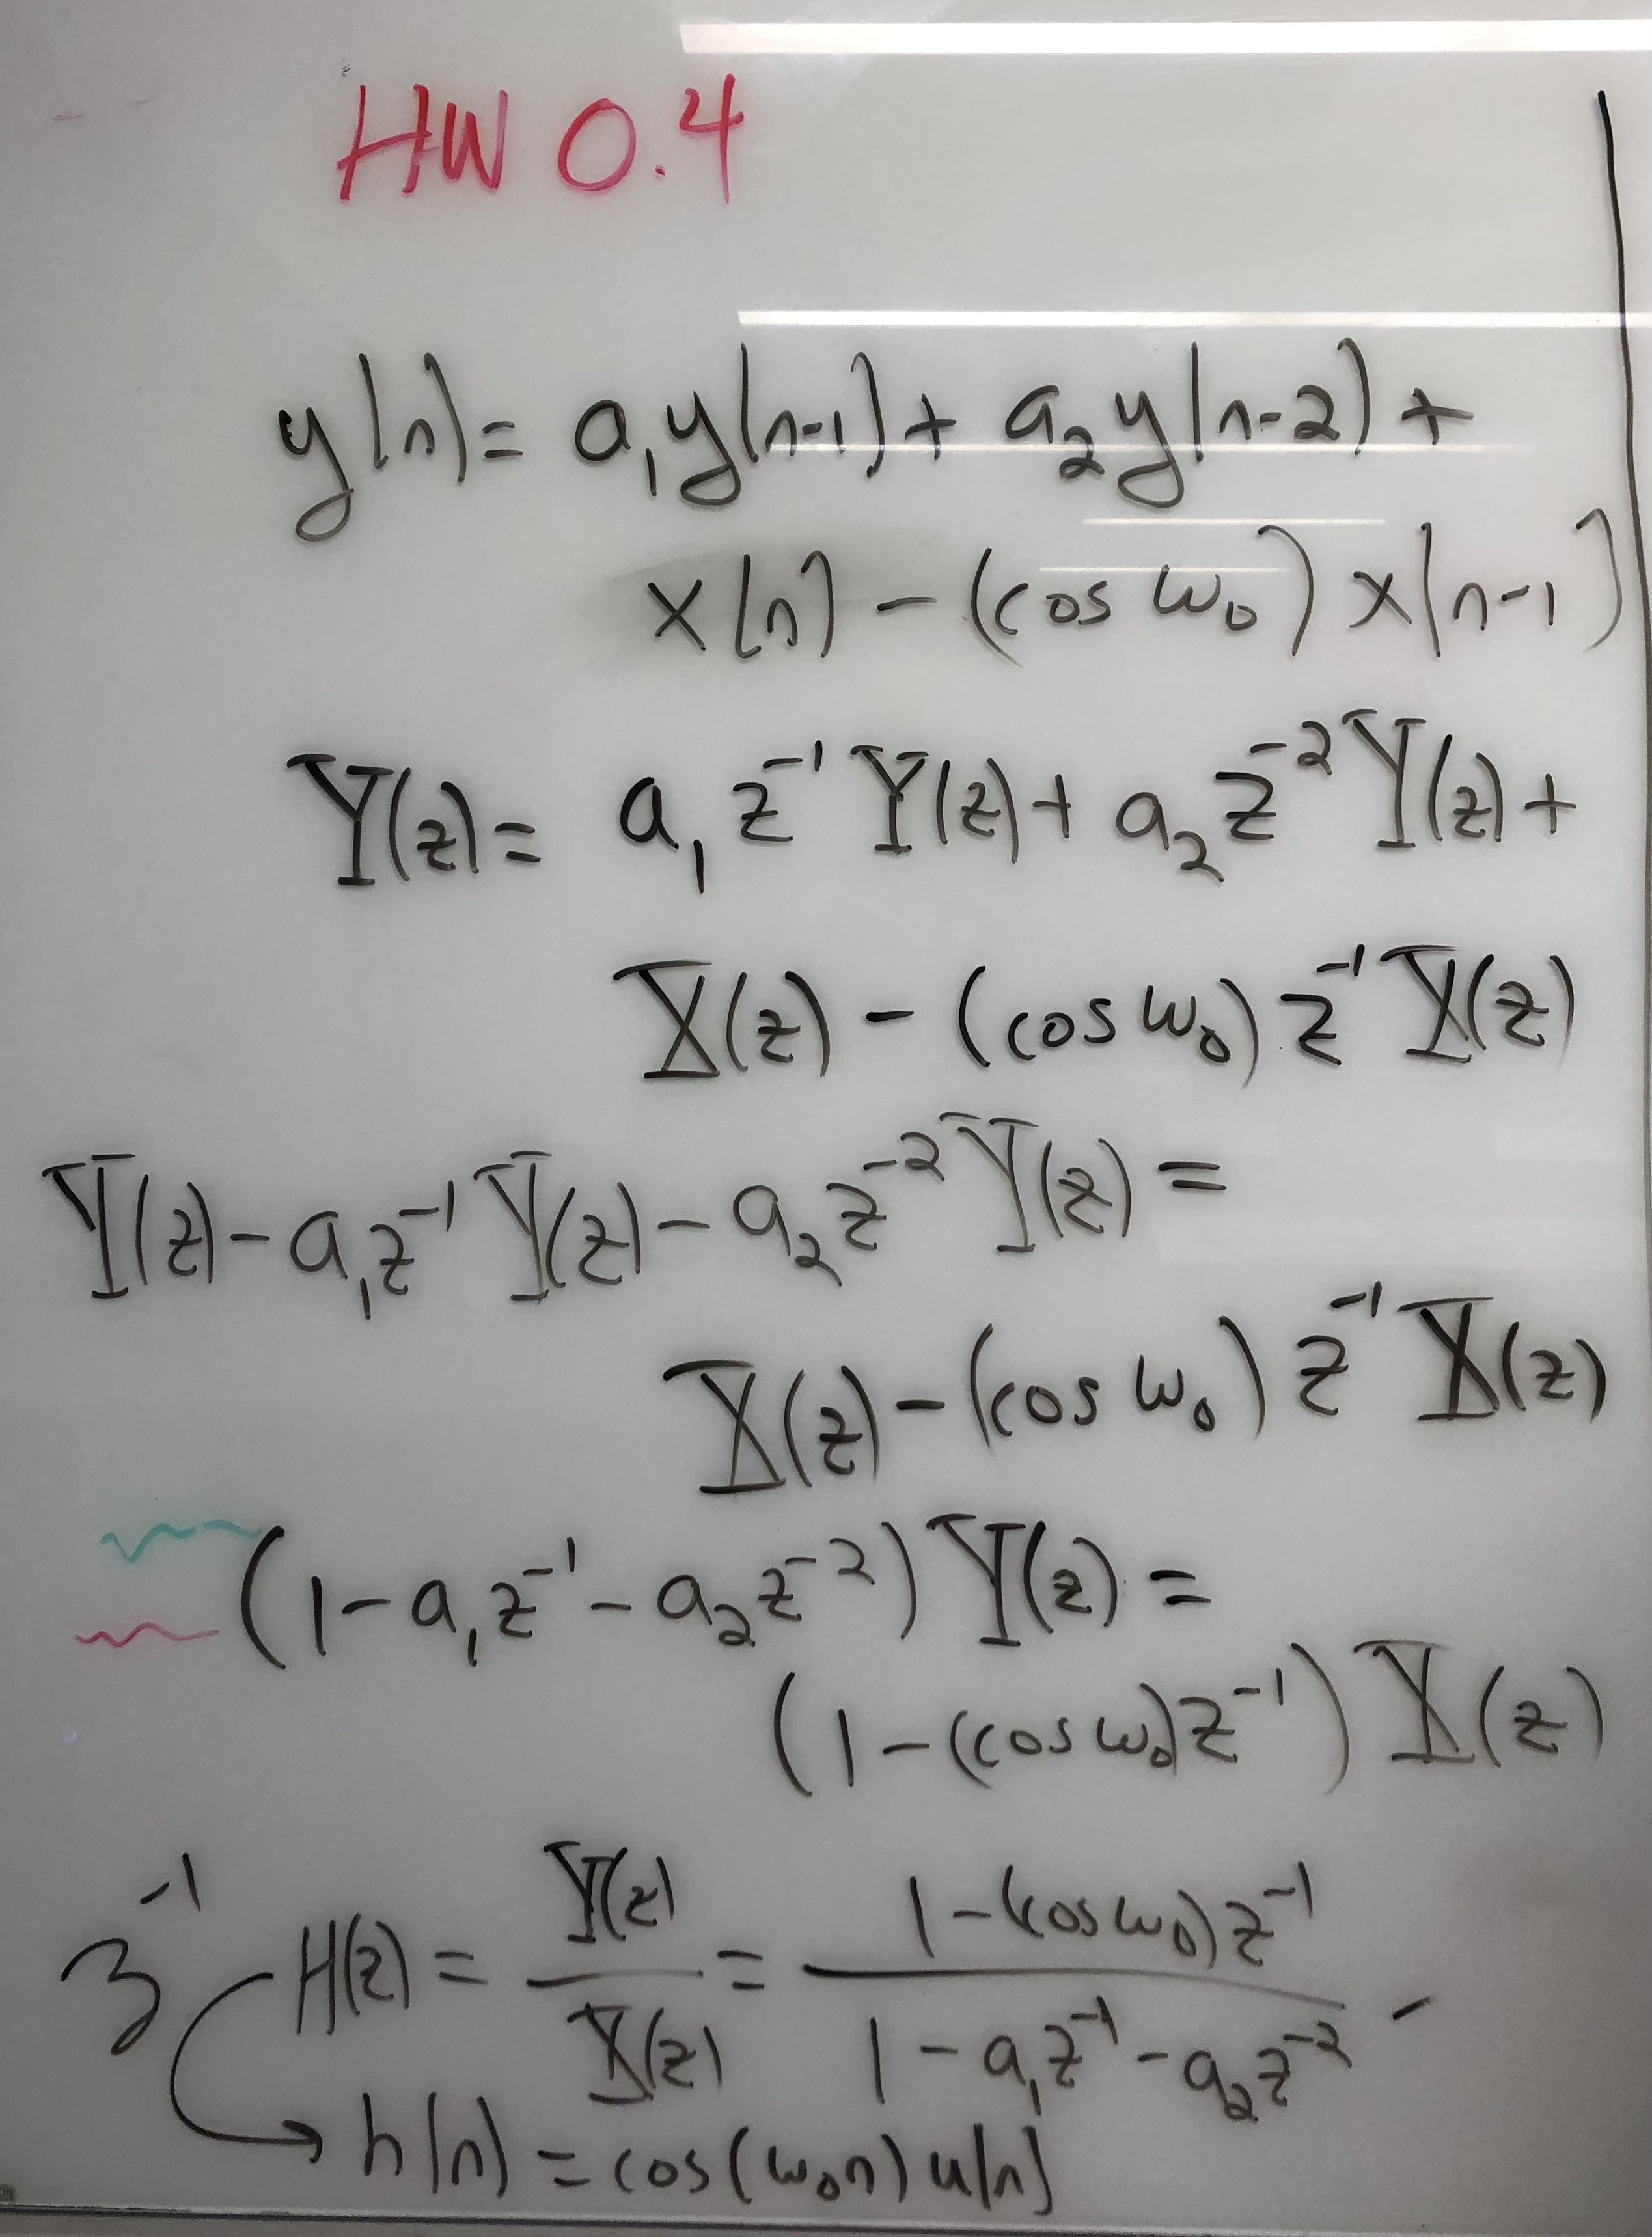 HW 0.4
y[n] = a₁y[n-1] + a₂y[n-2] +
x[n] - (cos ω₀) x[n-1]
Y(z) = a₁ z⁻¹ Y(z) + a₂ z⁻² Y(z) +
X(z) - (cos ω₀) z⁻¹ X(z)
Y(z) - a₁z⁻¹ Y(z) - a₂ z⁻² Y(z) =
X(z) - (cos ω₀) z⁻¹ X(z)
(1 - a₁z⁻¹ - a₂z⁻²) Y(z) =
(1 - (cos ω₀)z⁻¹) X(z)
𝒵⁻¹ H(z) = Y(z)/X(z) = (1 - (cos ω₀)z⁻¹)/(1 - a₁z⁻¹ - a₂z⁻²) -
h[n] = cos(ω₀n) u[n]